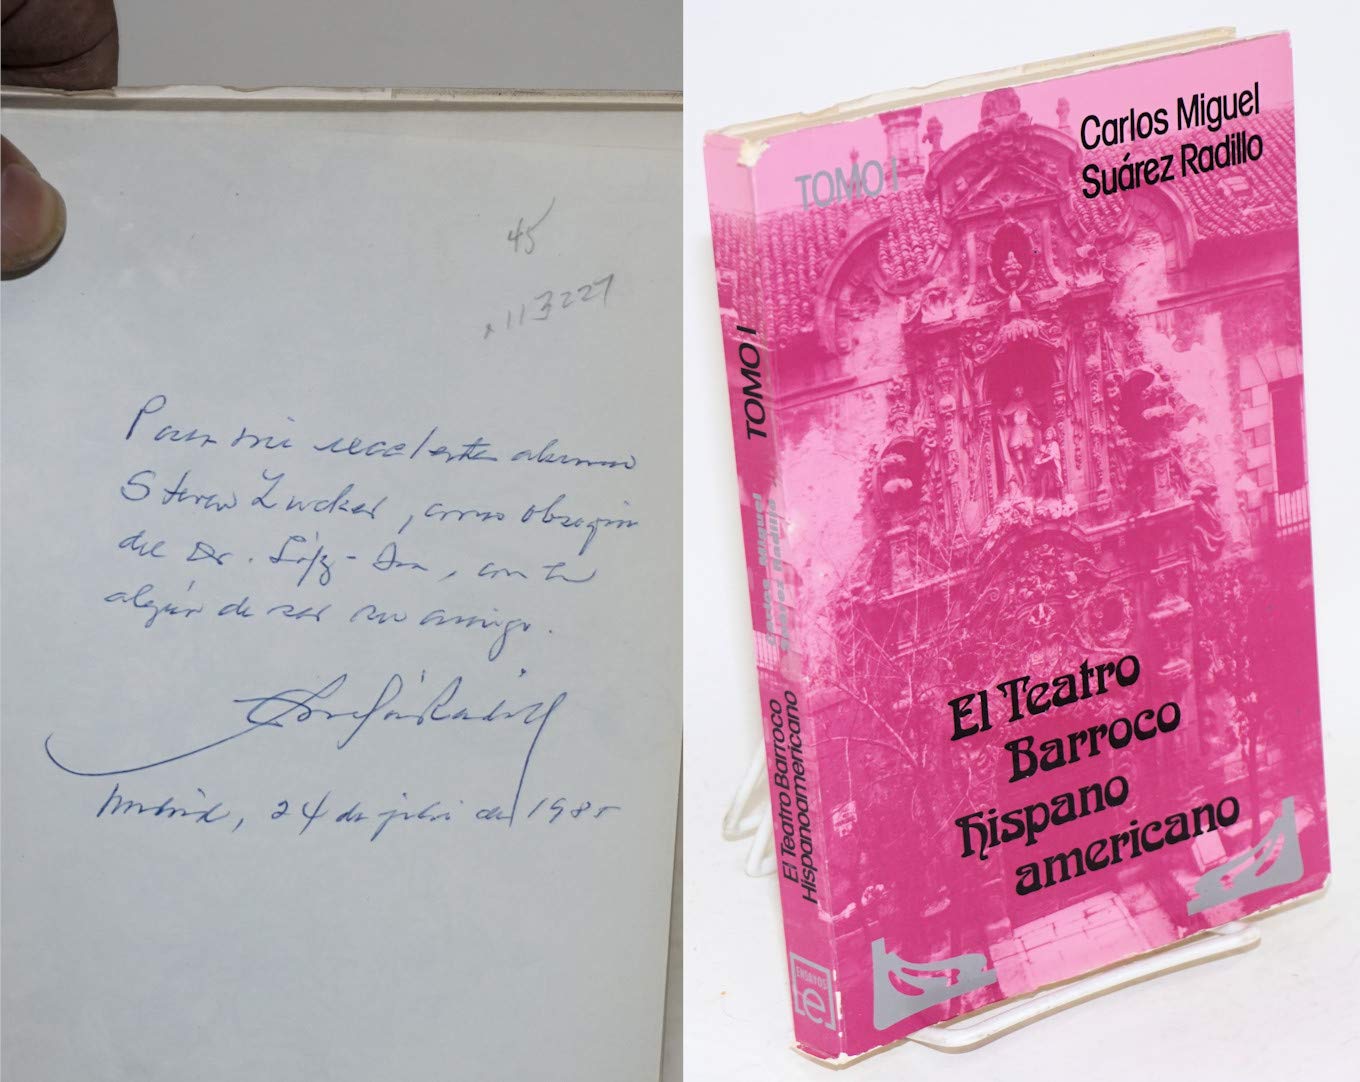 45
113227
Para mi excelente alumno
Steven Zucker, como obsequio
del Dr.
algún de ser su amigo.
Madrid, 24 de julio de 1985
Carlos Miguel
Suárez Radillo
TOMO I
El Teatro
Barroco
hispano
americano
TOMO I
Carlos Miguel
Suárez Radillo
El Teatro Barroco
Hispanoamericano
ENSAYOS
e